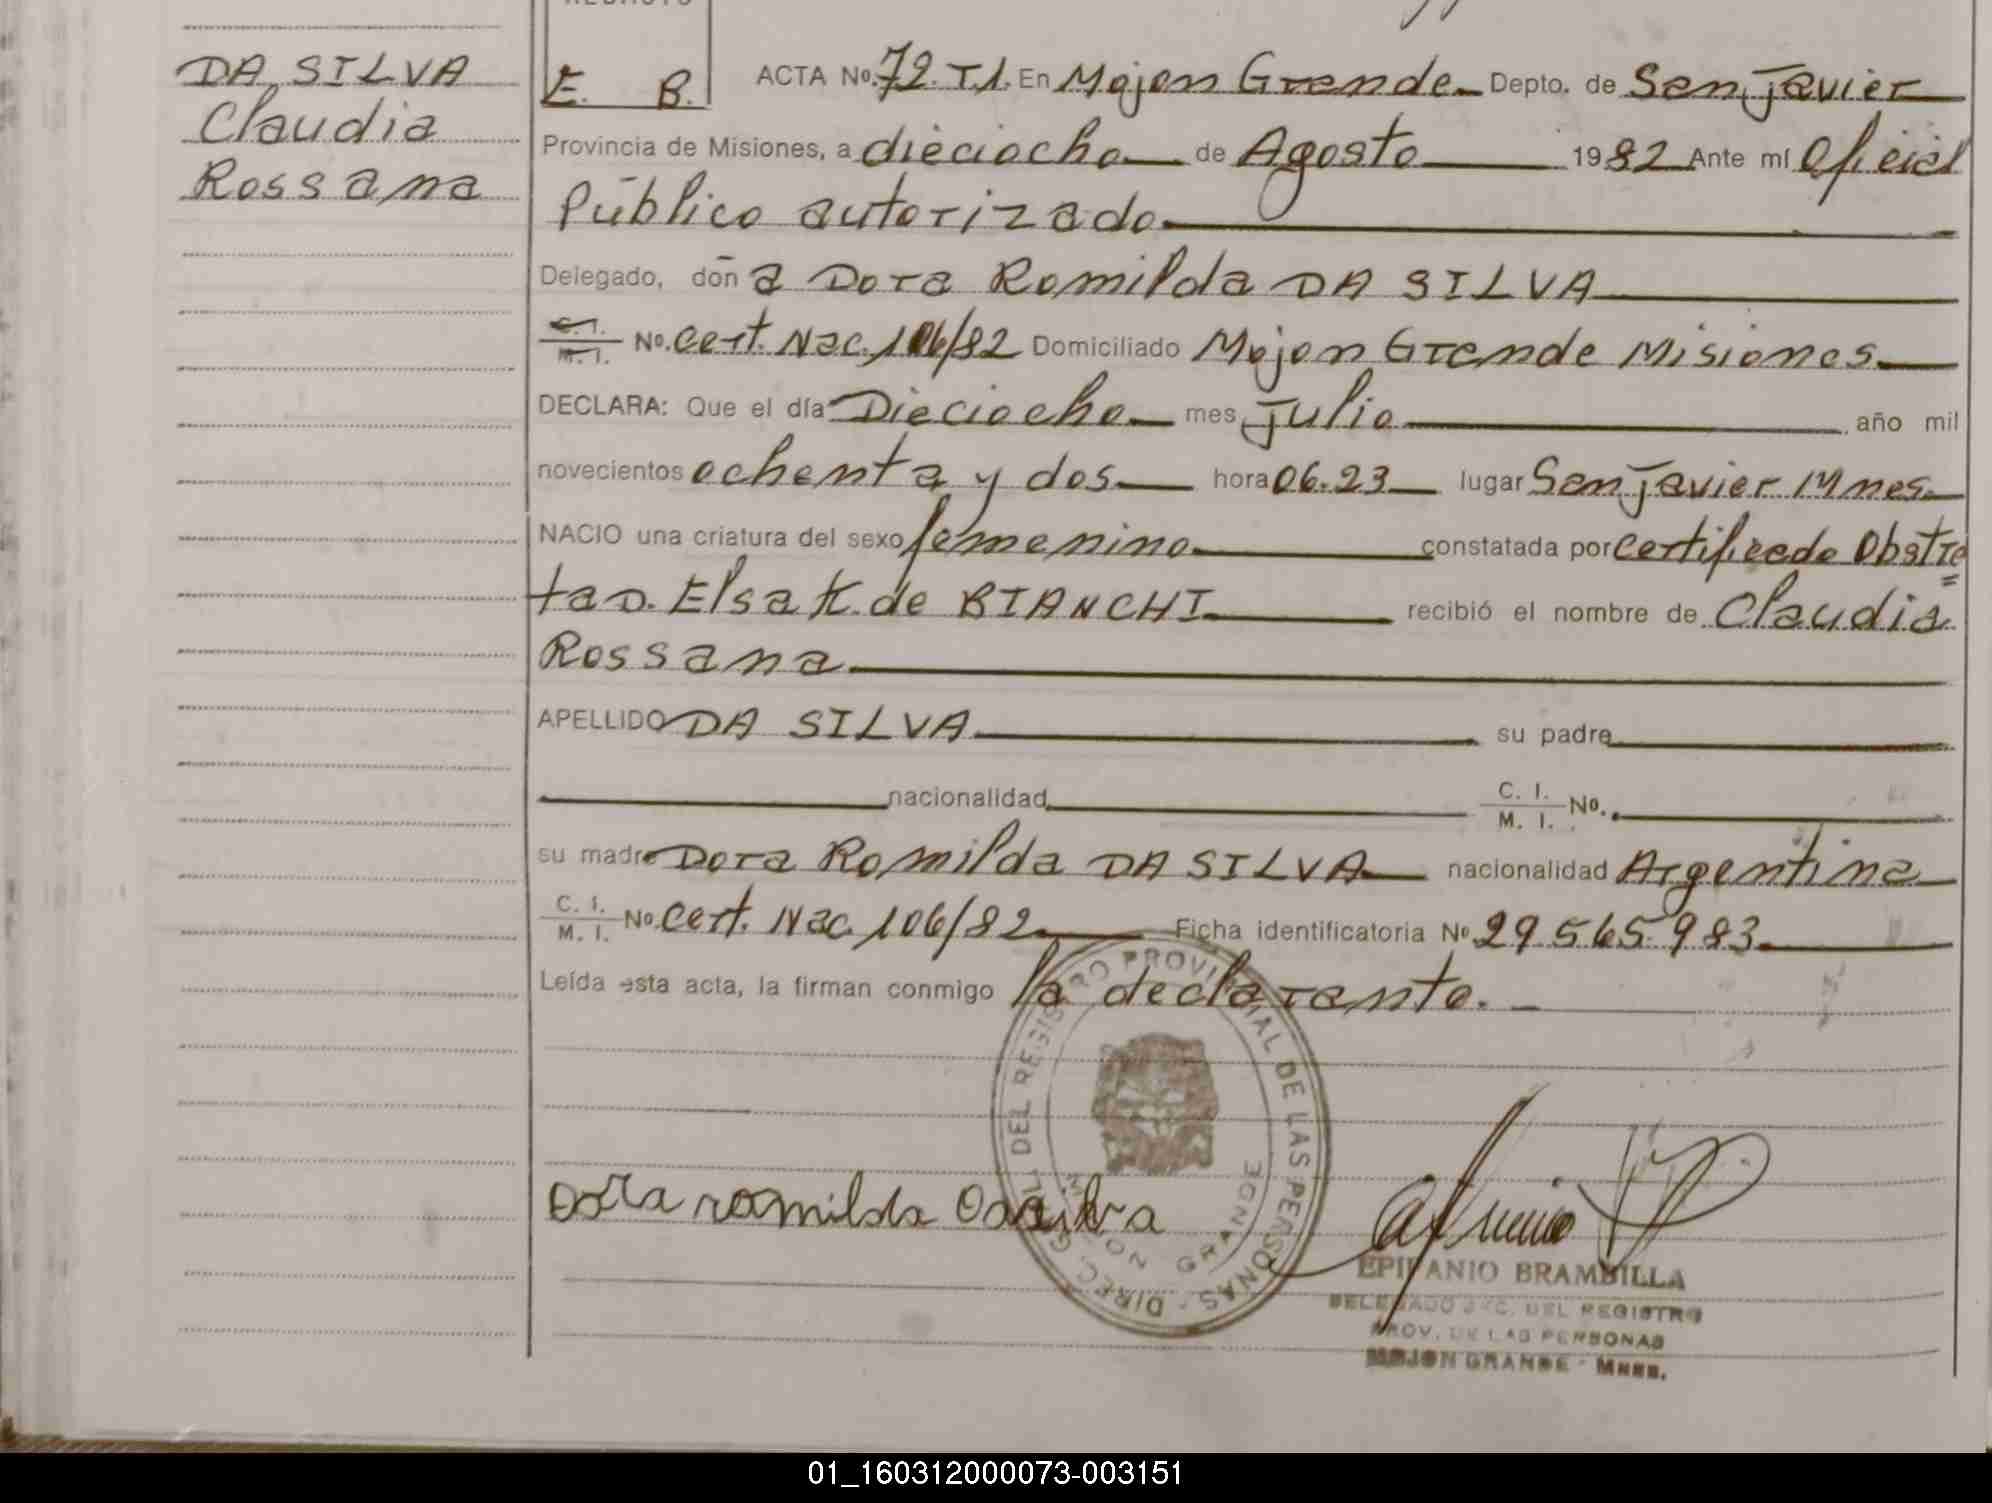 DA SILVA
Claudia
Rossana
E. B.
ACTA No. 72. T.1. En Mojon Grande Depto. de San Javier
Provincia de Misiones, a dieciocho de Agosto 1982 Ante mí Oficial
Público autorizado
Delegado, don a Dora Romilda DA SILVA
C. I. / M. I. No. Cert. Nac. 106/82 Domiciliado Mojon Grande Misiones
DECLARA: Que el día Dieciocho mes Julio año mil
novecientos ochenta y dos hora 06.23 lugar San Javier Mnes
NACIO una criatura del sexo femenino constatada por certificado Obstre
ta D. Elsa K. de BIANCHI recibió el nombre de Claudia
Rossana
APELLIDO DA SILVA su padre
nacionalidad C. I. / M. I. No.
su madre Dora Romilda DA SILVA nacionalidad Argentina
C. I. / M. I. No. Cert. Nac. 106/82 Ficha identificatoria No. 29565983
Leída esta acta, la firman conmigo la declarante.
DIREC. GRAL. DEL REGISTRO PROVINCIAL DE LAS PERSONAS
MOJON GRANDE
Dora romilda Dasilva
EPIFANIO BRAMBILLA
DELEGADO DEL REGISTRO
PROV. DE LAS PERSONAS
MOJON GRANDE - Mnes.
01_160312000073-003151